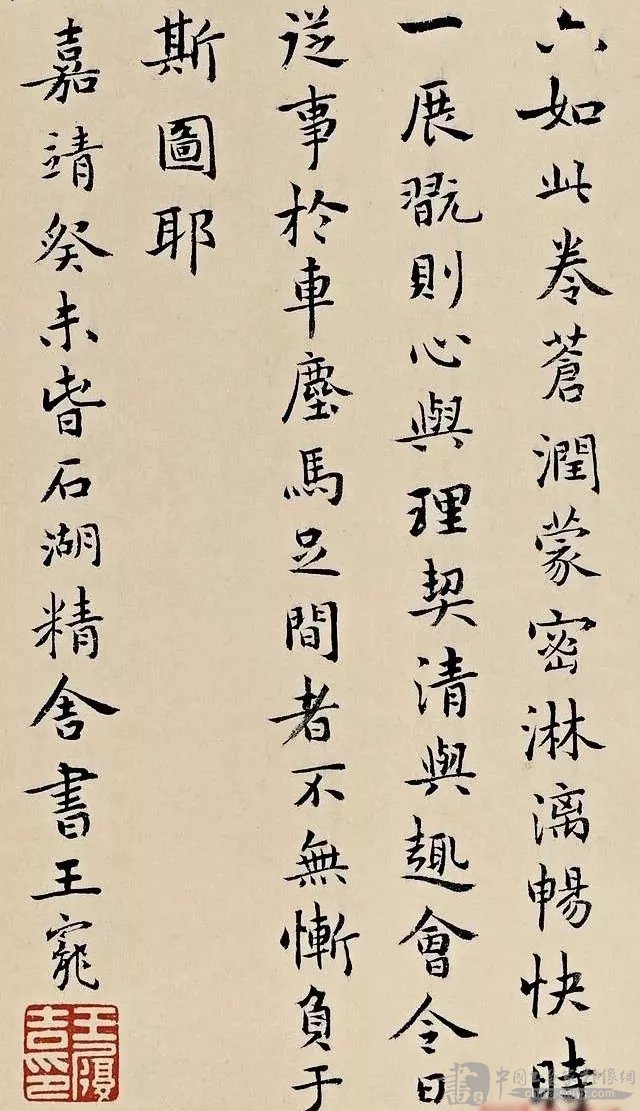 六如此卷蒼潤蒙密淋漓暢快時
一展翫則心與理契清與趣會令日
從事於車塵馬足間者不無慚負于
斯圖耶
嘉靖癸未春石湖精舍書王寵
王履吉印